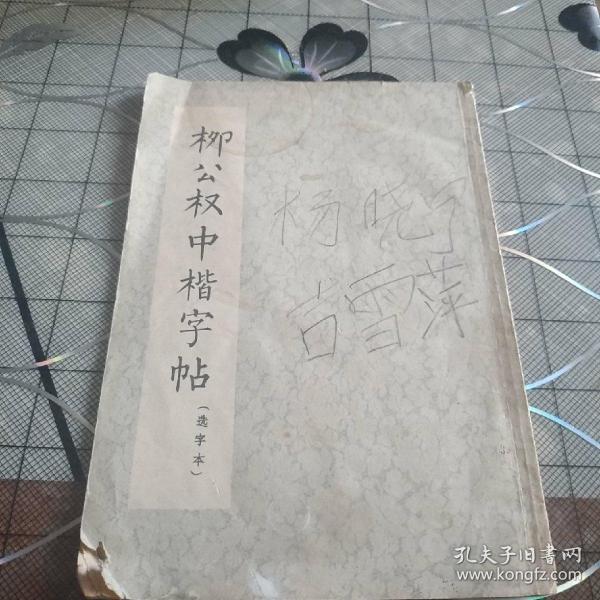 柳公权中楷字帖
（选字本）
杨晓宁
肖雪萍
孔夫子旧书网
www.kongfz.com